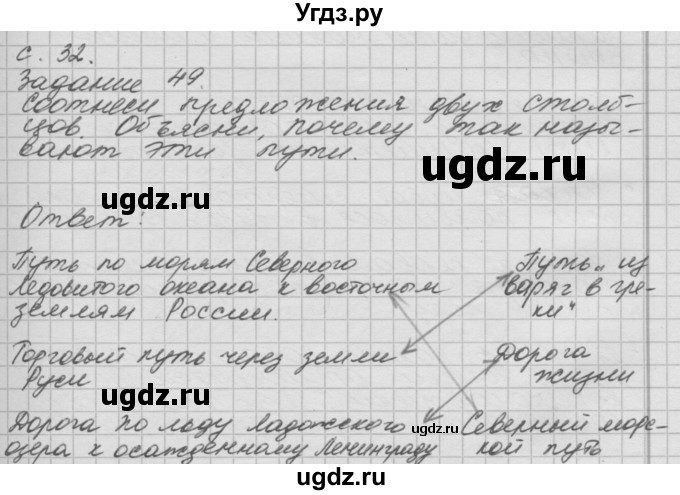 Угдз.ру
с. 32.
Задание 49.
Соотнеси предложения двух столб-
цов. Объясни, почему так назы-
вают эти пути.
ugdz.ru
ugdz.ru
Ответ:
ugdz.ru
Путь по морям Северного
Ледовитого океана к восточным
землям России.
Путь „из
варяг в гре-
ки“
ugdz.ru
Торговый путь через земли
Руси
Дорога
жизни
Дорога по льду Ладожского
озера к осаждённому Ленинграду
Северныйморс-
кой путь
ugdz.ru
ugdz.ru
ugdz.ru